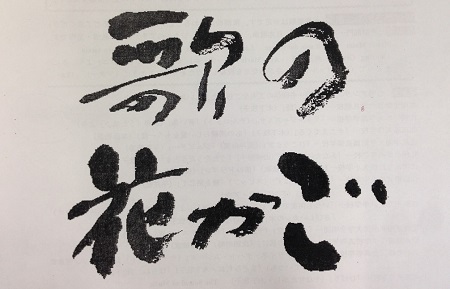 歌の
花かご